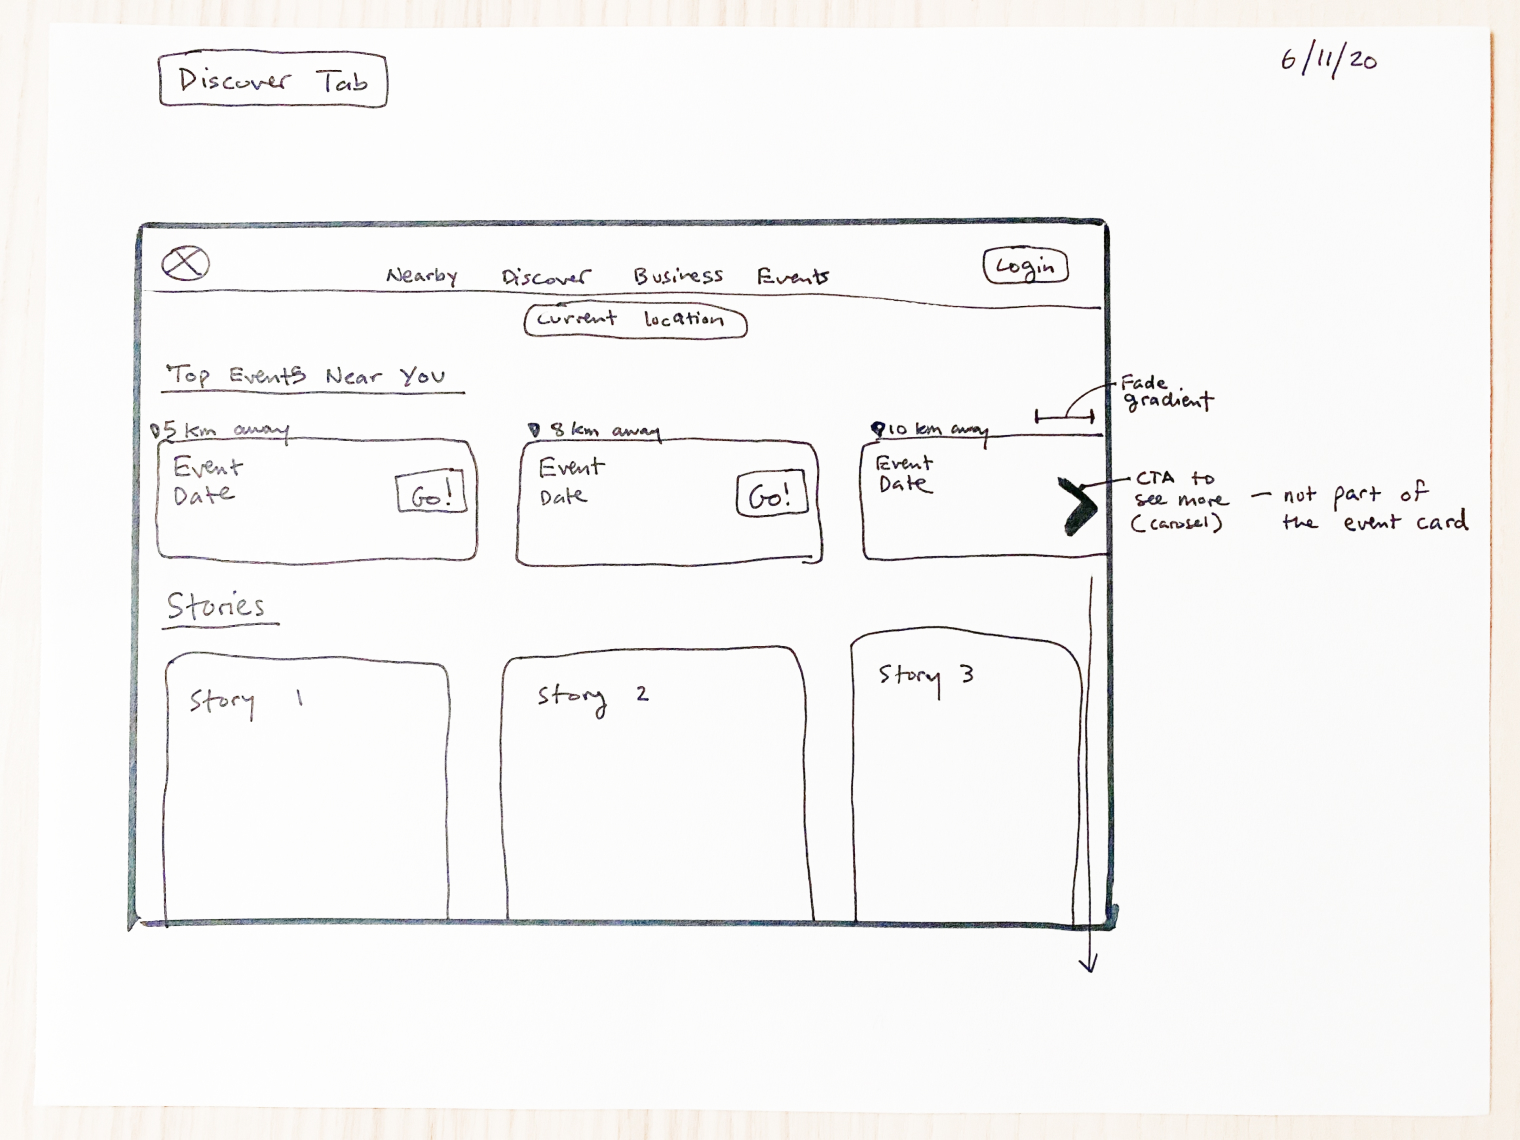 Discover Tab
6/11/20
Nearby Discover Business Events
Login
Current location
Top Events Near You
Fade
gradient
5 km away
8 km away
10 km away
Event
Date
Go!
Event
Date
Go!
Event
Date
CTA to
see more
(carosel)
— not part of
the event card
Stories
Story 1
Story 2
Story 3